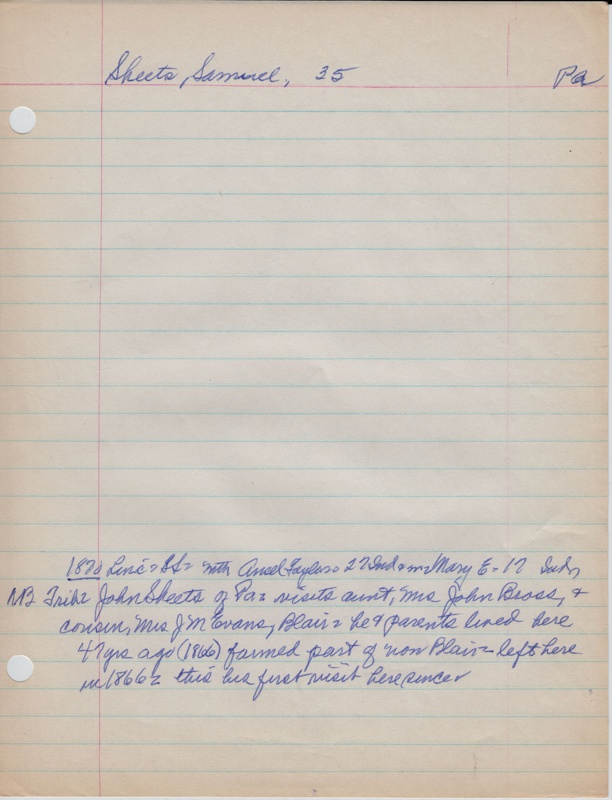 Sheets, Samuel, 35 Pa
1870 Linc = = with Ansel Taylor = 27 Ind = m = Mary E - 17 Ind,
Trib = John Sheets of Pa = visits aunt, Mrs John Bross, +
cousin, Mrs J M Evans, Blair = he + parents lived here
47 yrs ago (1866) farmed part of now Blair = left here
in 1866 = this his first visit here since